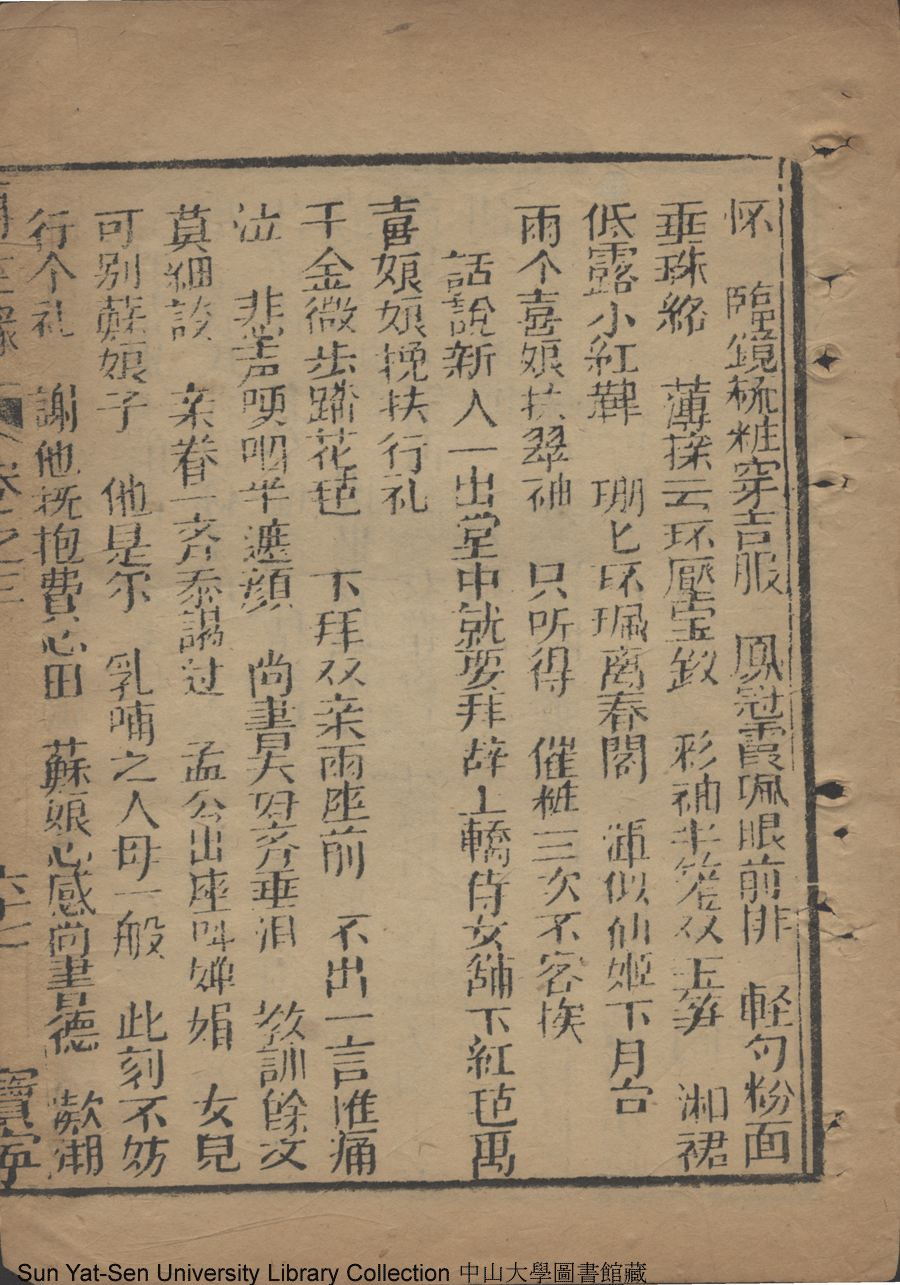 怀　臨鏡梳粧穿吉服　鳳冠霞珮眼前排　輕勻粉面
垂珠絡　薄搽云环壓宝釵　彩袖半笼双玉笋　湘裙
低露小紅鞾　珊匕环珮离春閣　渾似仙姬下月台
兩个喜娘扶翠袖　只听得　催粧三次不容挨
話說新人一出堂中就要拜辞上轎侍女舖下紅毡禹
喜娘娘挽扶行礼
千金微步踏花毡　下拜双亲兩座前　不出一言惟痛
泣　悲声哽咽半遮顏　尚書吴　齐垂泪　教訓餘文
莫細談　亲眷一齐忝謁过　孟公出座叫嬋娟　女兒
可别蘇娘子　他是尔　乳哺之人母一般　此刻不妨
行个礼　謝他抚抱費心田　蘇娘心感尚書德　歎潮
卷之三　六十二　寶寧
Sun Yat-Sen University Library Collection 中山大學圖書館藏